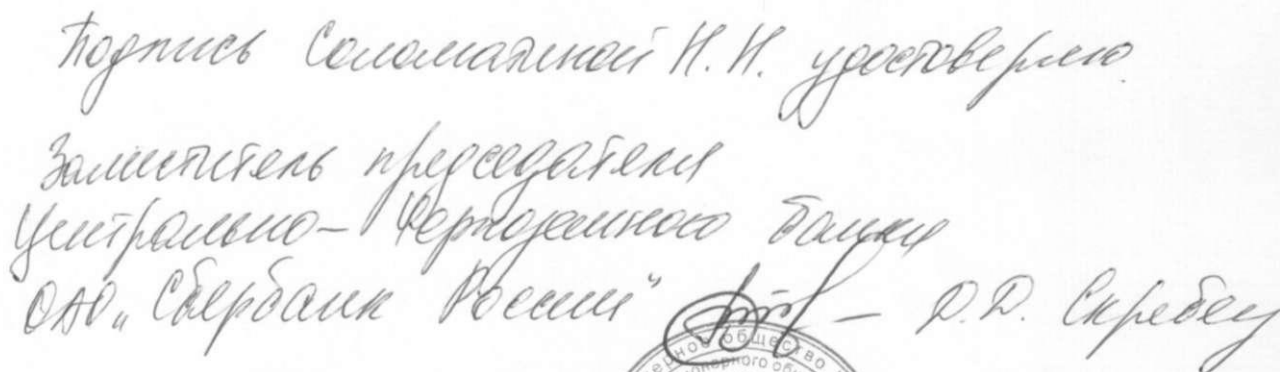 Подпись Соломатиной Н.Н. удостоверяю.
Заместитель председателя
Центрально-Черноземного банка
ОАО „Сбербанк России" — Д.Д. Скребец
ерное общество
онерного общ